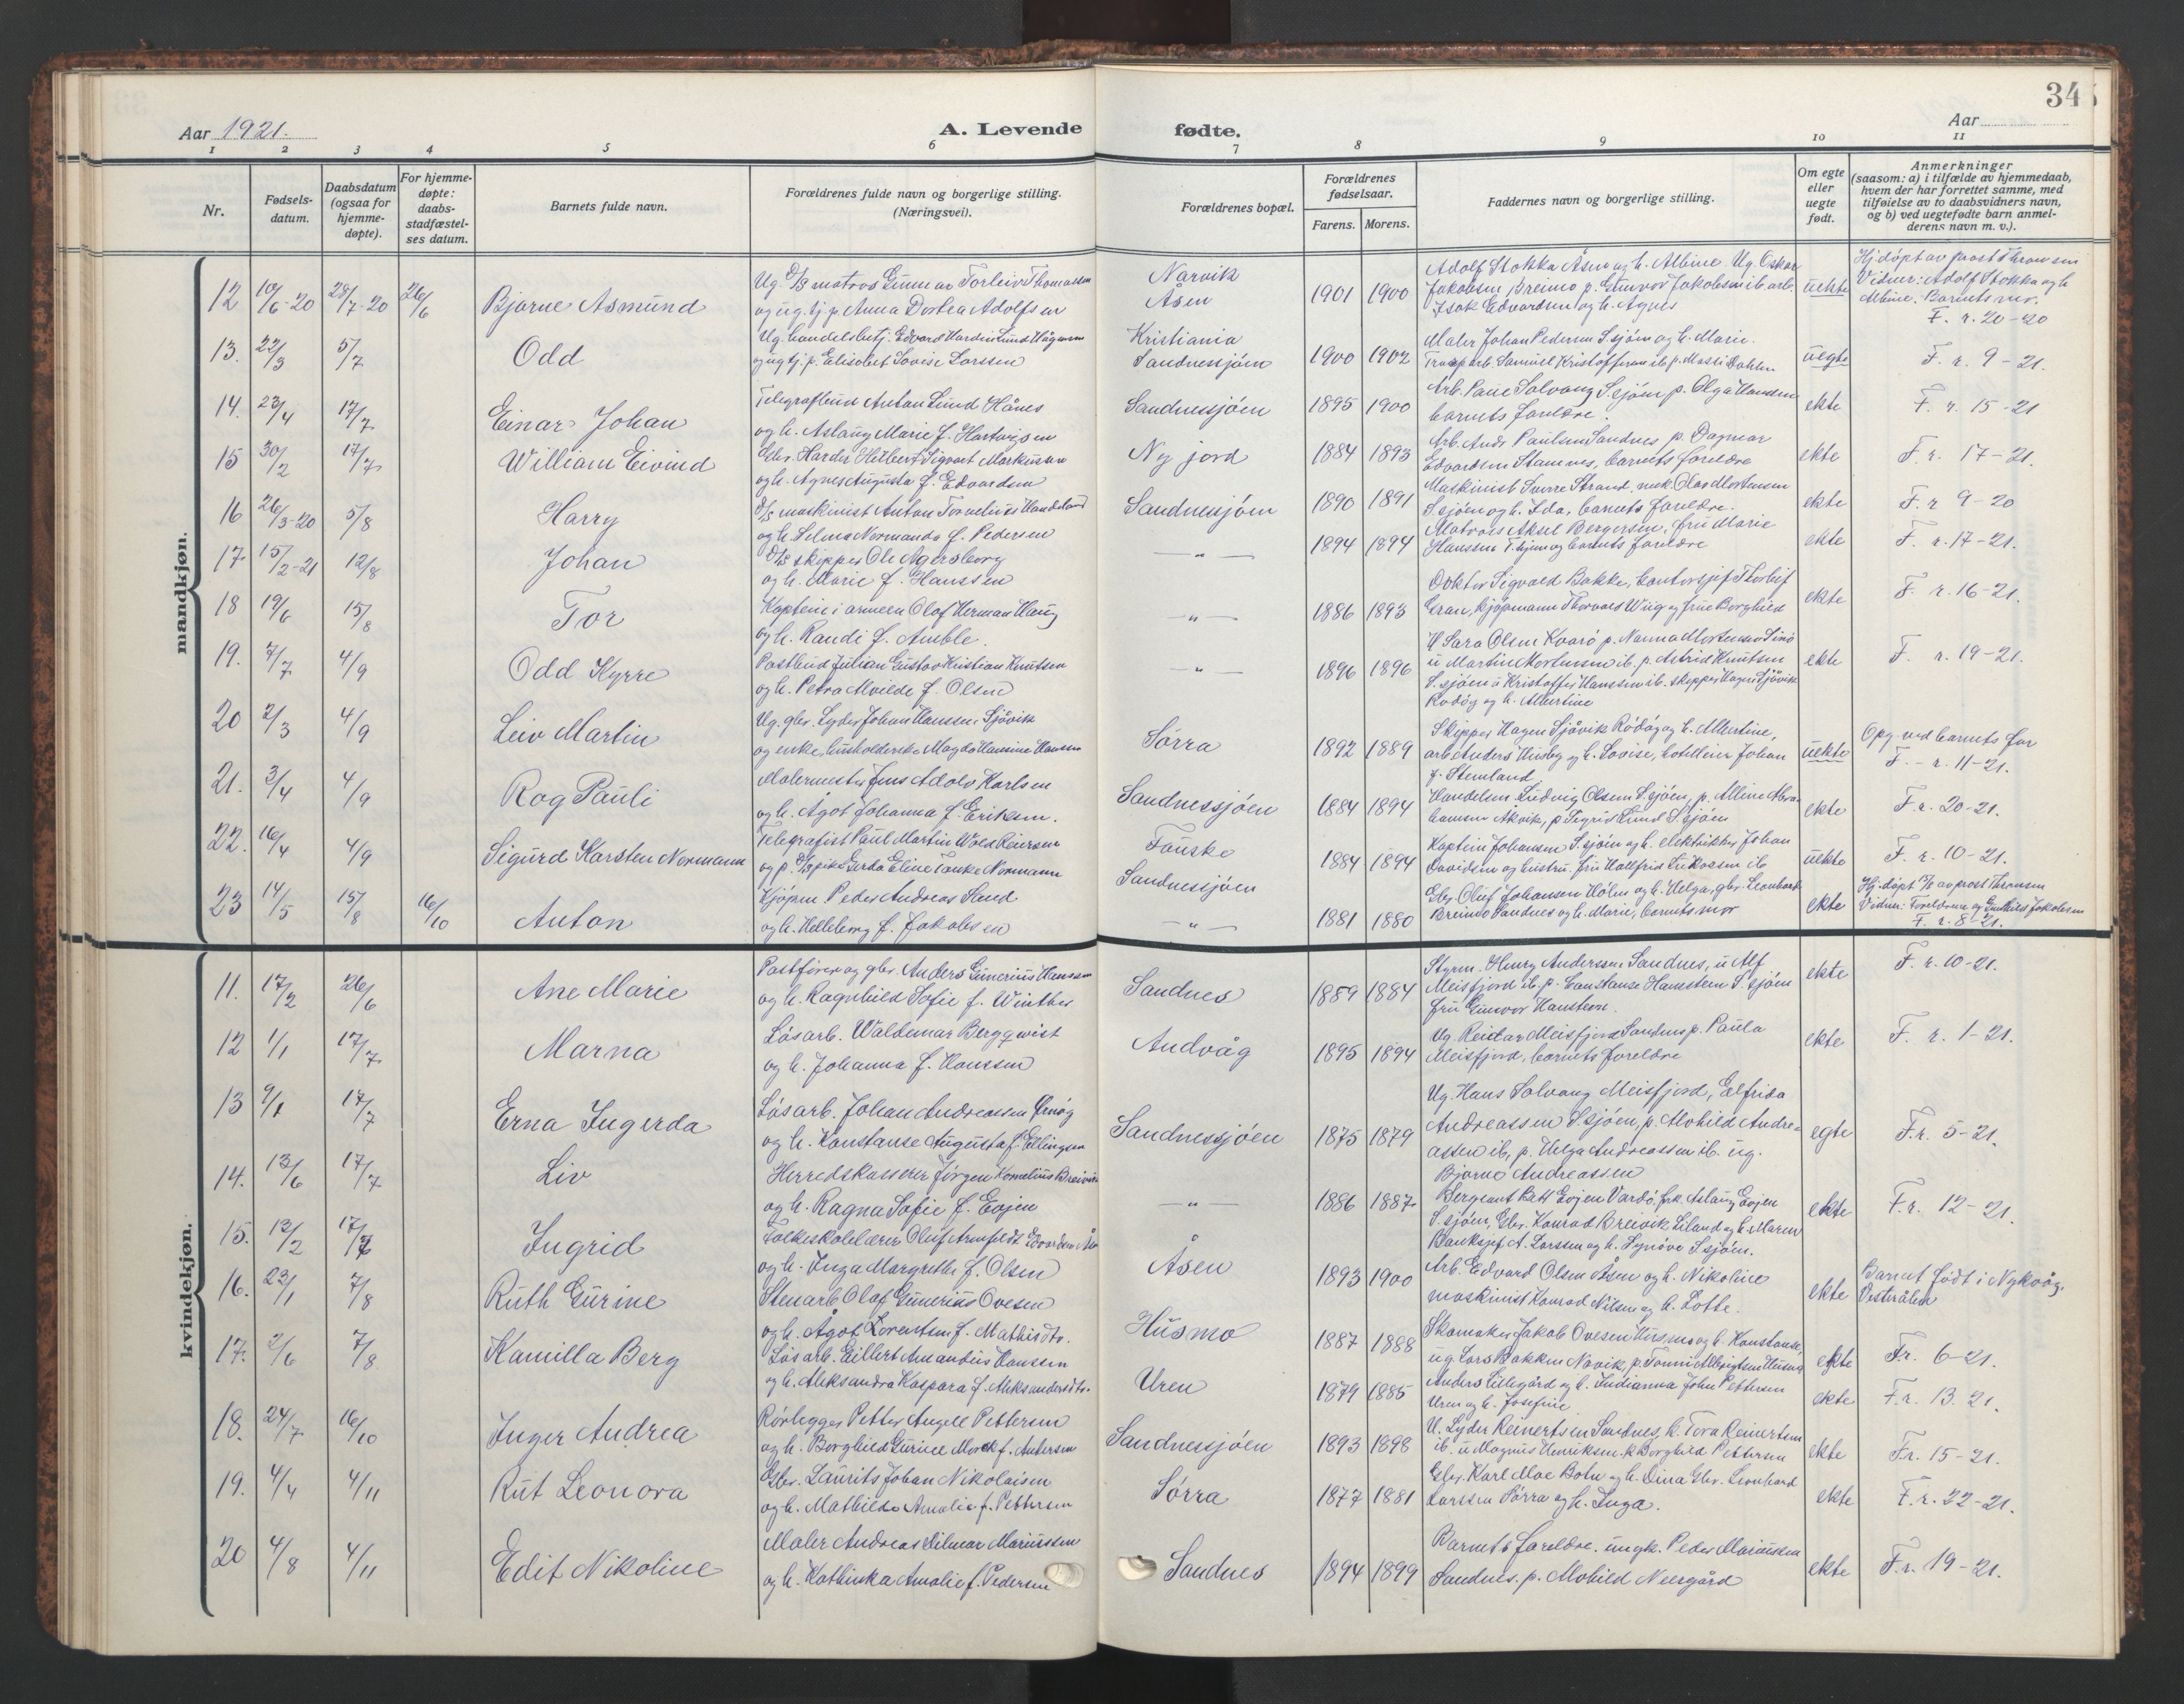 34
Aar 1921.
A. Levende fødte.
Aar
1 2 3 4 5 6 7 8 9 10 11
Nr.
Fødsels-
datum.
Daabsdatum
(ogsaa for
hjemme-
døpte).
For hjemme-
døpte:
daabs-
stadfæstel-
ses datum.
Barnets fulde navn.
Forældrenes fulde navn og borgerlige stilling.
(Næringsvei).
Forældrenes bopæl.
Forældrenes
fødselsaar.
Farens. Morens.
Faddernes navn og borgerlige stilling.
Om egte
eller
uegte
født.
Anmerkninger
(saasom: a) i tilfælde av hjemmedaab,
hvem der har forrettet samme, med
tilføielse av to daabsvidners navn,
og b) ved uegtefødte barn anmel-
derens navn m. v.).
mandkjøn.
12 10/6-20 28/7-20 26/6 Bjarne Asmund
Ug. D/S matros Gunnar Torleiv Thomassen
og ug. tj. p. Anna Dortea Adolfsen
Narvik
Åsen
1901 1900
Adolf Stokka Åsen og h. Albine. Ug. Oskar
Jakobsen Breimo p. Gunvor Jakobsen ib. arb.
Isak Edvardsen og h. Agnes
uekte
Hj.døpt av prost Thronsen
Vidner: Adolf Stokka og h.
Albine. Barnets mor.
F. r. 20-20
13. 22/3 5/7 Odd
Ug. handelsbetj. Edvard Lund Hågensen
og ug tj. p. Elisabet Lovise Larssen
Kristiania
Sandnessjøen
1900 1902
Maler Johan Pedersen S.sjøen og h. Marie.
arb. Samuel Kristoffersen ib p. Massi Dahlen
uegte
F. r. 9-21.
14. 23/4 17/7 Einar Johan
Telegrafbud Anton Lund Hånes
og h. Aslaug Marie f. Hartvigsen
Sandnessjøen
1895 1900
Arb. Paul Solvang S.sjøen p. Olga Hanssen
barnets foreldre.
ekte
F. r. 15-21
15 30/2 17/7 William Eivind
Gbr. Harder Hilbert Sigvart Markussen
og h. Agnes Augusta f. Edvardsen
Ny jord
1884 1893
Arb. Andr Paulsen Sandnes p. Dagmar
Edvardsen Stamnes, barnets foreldre
ekte
F. r. 17-21.
16 26/3-20 5/8 Harry
D/S maskinist Anton Cornelius Handeland
og h. Selma Normanda f. Pedersen
Sandnessjøen
1890 1891
Maskinist Sverre Strand, snek. Olav Mortensen
S.sjøen og h. Ida, barnets foreldre.
ekte
F. r 9-20
17. 15/2-21 12/8 Johan
D/S skipper Ole Agersborg
og h. Marie f. Hanssen
— " —
1894 1894
Matros Aksel Bergersen, fru Marie
Hanssen T.hjem og barnets foreldre
ekte
F. r. 17-21.
18 19/6 15/8 Tor
Kaptein i armeen Olaf Herman Haug
og h. Randi f. Amble.
— " —
1886 1893
Doktor Sigvald Bakke, kontorsjef Thorleif
Gran, kjøpmann Thorvald Wiig og frue Borghild
ekte
F. r. 16-21.
19. 7/7 4/9 Odd Kyrre
Postbud Julian Gustav Kristian Knutsen
og h. Petra Alvilde f. Olsen
— " —
1896 1896
H Sara Olsen Kvarø p. Nanna Mortensen
u Martin Mortensen ib. p. Astrid Knutsen
S.sjøen u Kristoffer Hanssen ib. skipper Hagen Sjåvik
Rødøy og h. Albertine
ekte
F. r. 19-21.
20 2/3 4/9 Leiv Martin
Ug. gbr. Lyder Johan Hanssen Sjåvik
og enke, husholderske Magda Hansine Hansen
Sørra
1892 1889
Skipper Hagen Sjåvik Rødøy og h. Albertine,
arb Anders Husby og h. Lovise, hotelleier Johan
f. Stemland
uekte
Opg. ved barnets far
F. - r. 11-21.
21. 3/4 4/9 Rag Pauli
Malermester Jens Adolv Karlsen
og h. Ågot Johanna f. Eriksen.
Sandnessjøen
1884 1894
Handelsm. Ludvig Olsen S.sjøen, p. Alline Abra-
hamsen Akvik, p Sigrid Lund S.sjøen
ekte
F. r. 20-21.
22. 16/4 4/9 Sigurd Karsten Normann
Telegrafist Paul Martin Wold Reiersen
og p. D/S pike Gerda Eline Tanke Normann
Fauske
Sandnessjøen
1884 1894
Kaptein Johansen S.sjøen og h. elektriker Johan
Davidsen og hustru, fru Hallfrid Erikssen ib
uekte
F. r. 10-21.
23 14/5 15/8 16/10 Anton
Kjøpm. Peder Andreas Sund
og h. Helleborg f. Jakobsen
— " —
1881 1880
Gbr. Oluf Johansen Holm og h. Helga, gbr. Leonhard
Breimo Sandnes og h. Marie, barnets mor
ekte
Hj.døpt av prost Thronsen
Vidner: Foreldrene og Jakobsen
F. r. 8-21.
kvindekjøn.
11. 17/2 26/6 Ane Marie
Postfører og gbr. Anders Gunerius Hanssen
og h. Ragnhild Sofie f. Winther
Sandnes
1889 1884
Styrm. Henry Anderssen Sandnes, u Alf
Meisfjord ib. p. Constanse Hanssen S.sjøen
fru Gunvor Hansteen.
ekte
F. r. 10-21.
12 1/1 17/7 Marna
Løsarb. Waldemar Bergqwist
og h. Johanna f. Hanssen
Andvåg
1895 1894
Ug. Reidar Meisfjord Sandnes p. Paula
Meisfjord, barnets foreldre
ekte
F. r. 1-21.
13 9/1 17/7 Erna Ingerda
Løsarb. Johan Andreassen
og h. Konstanse Augusta f. Ellingsen
Sandnessjøen
1875 1879
Ug. Hans Solvang Meisfjord, Elfrida
Andreassen S.sjøen, p. Alvhild Andre-
assen ib, p. Helga Andreassen ib. ug.
Bjarne Andreassen
egte
F.r. 5-21.
14. 13/6 17/7 Liv
Herredskasserer Jørgen Kornelius Breivik
og h. Ragna Sofie f. Evjen
— " —
1886 1887
Sergeant Evjen Vardø, frk. Aslaug Evjen
S.sjøen, Gbr. Konrad Breivik Leland og h. Maren
Banksjef A. Larssen og h. Synøve S.sjøen.
ekte
F.r. 12-21.
15. 13/2 17/7 Ingrid
Folkeskolelærer Oluf Arnfeldt Edvardsen
og h. Inga Margrethe f. Olsen
Åsen
1893 1900
Arb. Edvard Olsen Åsen og h. Nikoline
maskinist Konrad Nilsen og h. Lotte.
ekte
Barnet født i Nykvåg,
Vesterålen
16. 23/1 7/8 Ruth Gurine
Stenarb. Olaf Gunerius Ovesen
og h. Ågot Lorentsen f. Mathisdtr.
Husmo
1887 1888
Skomaker Jakob Ovesen Husmo og h. Konstanse,
ug. Lars Bakken Navik, p. Tonni Albrigtsen Husmo
ekte
F.r. 6-21.
17. 2/6 7/8 Kamilla Berg
Løsarb. Eillert Amandus Hanssen
og h. Aleksandra Kaspara f. Aleksandersdtr.
Uren
1879 1885
Anders Lillegård og h. Indianna John Pettersen
Uren og h. Josefine
ekte
F.r. 13. 21.
18. 24/7 16/10 Inger Andrea
Rørlegger Petter Angell Pettersen
og h. Borghild Gurine Mørck f. Andersen
Sandnessjøen
1893 1898
U. Lyder Reinertsen Sandnes, k. Tora Reinertsen
ib. u Magnus Henriksen. k Borghild Pettersen
ekte
F.r. 15-21.
19. 4/4 4/11 Rut Leonora
Gbr. Laurits Johan Nikolaisen
og h. Mathilde Amalie f. Pettersen
Sørra
1877 1881
Gbr. Karl Moe Botn og h. Dina Gbr. Leonhard
Larssen Sørra og h. Inga.
ekte
F.r. 22-21.
20 4/8 4/11 Edit Nikoline
Maler Andreas Hilmar Mariussen
og h. Kathinka Amalie f. Pedersen
Sandnes
1894 1899
Barnets foreldre. ungk. Peder Mariussen
Sandnes, p. Alvhild Neergård
ekte
F.r. 19-21.